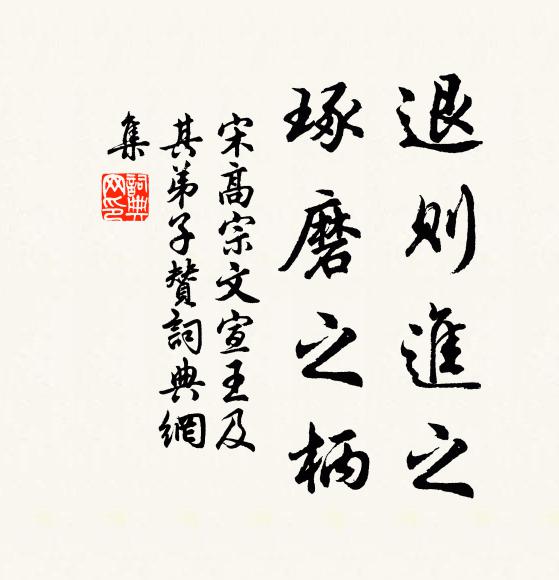 退則進之
琢磨之柄
宋高宗文宣王及
其弟子贊詞典網
集
詞典
网印